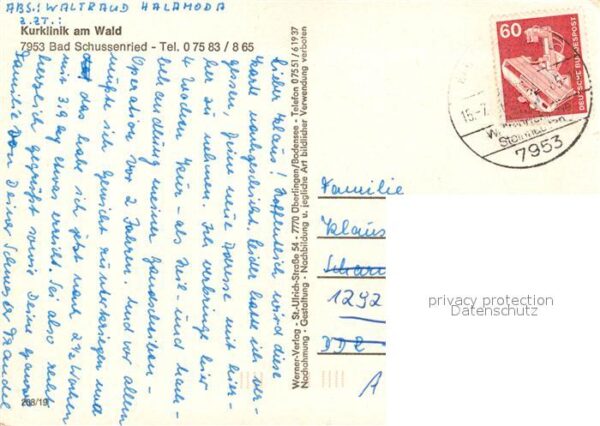 ABS.: WALTRAUD HALAMODA
z.Zt.:
Kurklinik am Wald
7953 Bad Schussenried - Tel. 0 75 83 / 8 65
Lieber Klaus! Hoffentlich wird diese
Karte nachgeschickt. Leider hatte ich ver-
gessen Deine neue Adresse mit hier-
her zu nehmen. Ich verbringe hier
4 Wochen Kur - als Heil- und Nach-
behandlung meiner Bandscheiben-
Operation vor 2 Jahren, und vor allem
mußte ich Gewicht runterkriegen und
das habe ich jetzt nach 2½ Wochen
mit 3,9 kg etwas erreicht. Sei also recht
herzlich gegrüßt sowie Deine ganze
Familie von Deiner Schwester Traudel
268/19
Werner-Verlag - St.-Ulrich-Straße 54 - 7770 Überlingen/Bodensee - Telefon 07551/61937
Nachahmung - Gestaltung - Nachbildung u. jegliche Art bildlicher Verwendung verboten
60
DEUTSCHE BUNDESPOST
15.-7.
Steinhausen
7953
Familie
Klaus
1292
DDR
A
privacy protection
Datenschutz